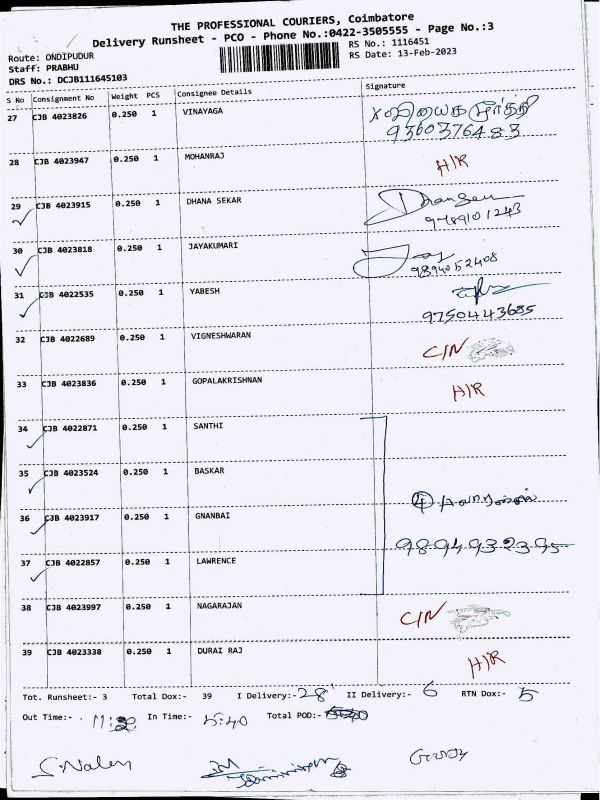 THE PROFESSIONAL COURIERS, Coimbatore
Delivery Runsheet - PCO - Phone No.:0422-3505555 - Page No.:3
Route: ONDIPUDUR
RS No.: 1116451
Staff: PRABHU
RS Date: 13-Feb-2023
DRS No.: DCJB111645103
S No Consignment No Weight PCS Consignee Details Signature
27 CJB 4023826 0.250 1 VINAYAGA
9360376483
28 CJB 4023947 0.250 1 MOHANRAJ H/R
29 CJB 4023915 0.250 1 DHANA SEKAR Dhansen
9789101243
30 CJB 4023818 0.250 1 JAYAKUMARI Jay
9894052408
31 CJB 4022535 0.250 1 YABESH
9750443685
32 CJB 4022689 0.250 1 VIGNESHWARAN C/N
33 CJB 4023836 0.250 1 GOPALAKRISHNAN H/R
34 CJB 4022871 0.250 1 SANTHI
35 CJB 4023524 0.250 1 BASKAR
4
36 CJB 4023917 0.250 1 GNANBAI
9894932395
37 CJB 4022857 0.250 1 LAWRENCE
38 CJB 4023997 0.250 1 NAGARAJAN C/N
39 CJB 4023338 0.250 1 DURAI RAJ H/R
Tot. Runsheet:- 3 Total Dox:- 39 I Delivery:- 28 II Delivery:- 6 RTN Dox:- 5
Out Time:- In Time:- 5:40 Total POD:-
S.Nalen